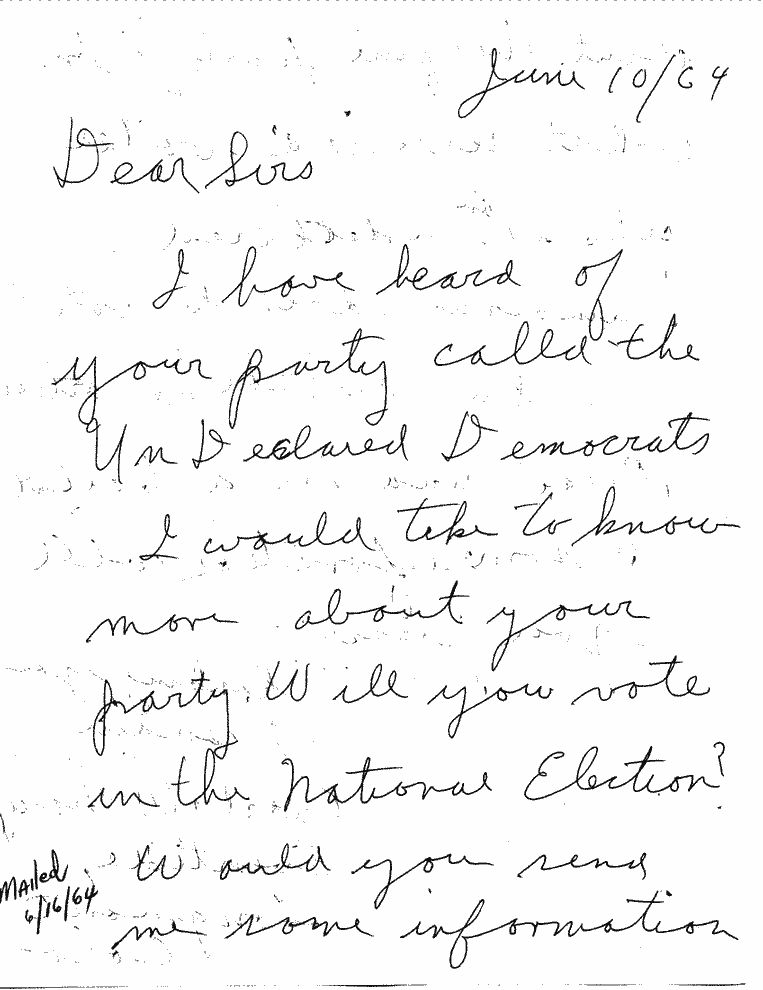 June 10/64
Dear Sirs
I have heard of
your party called the
UnDeclared Democrats
I would like to know
more about your
party. Will you vote
in the National Election?
Would you send
me some information
Mailed
6/16/64